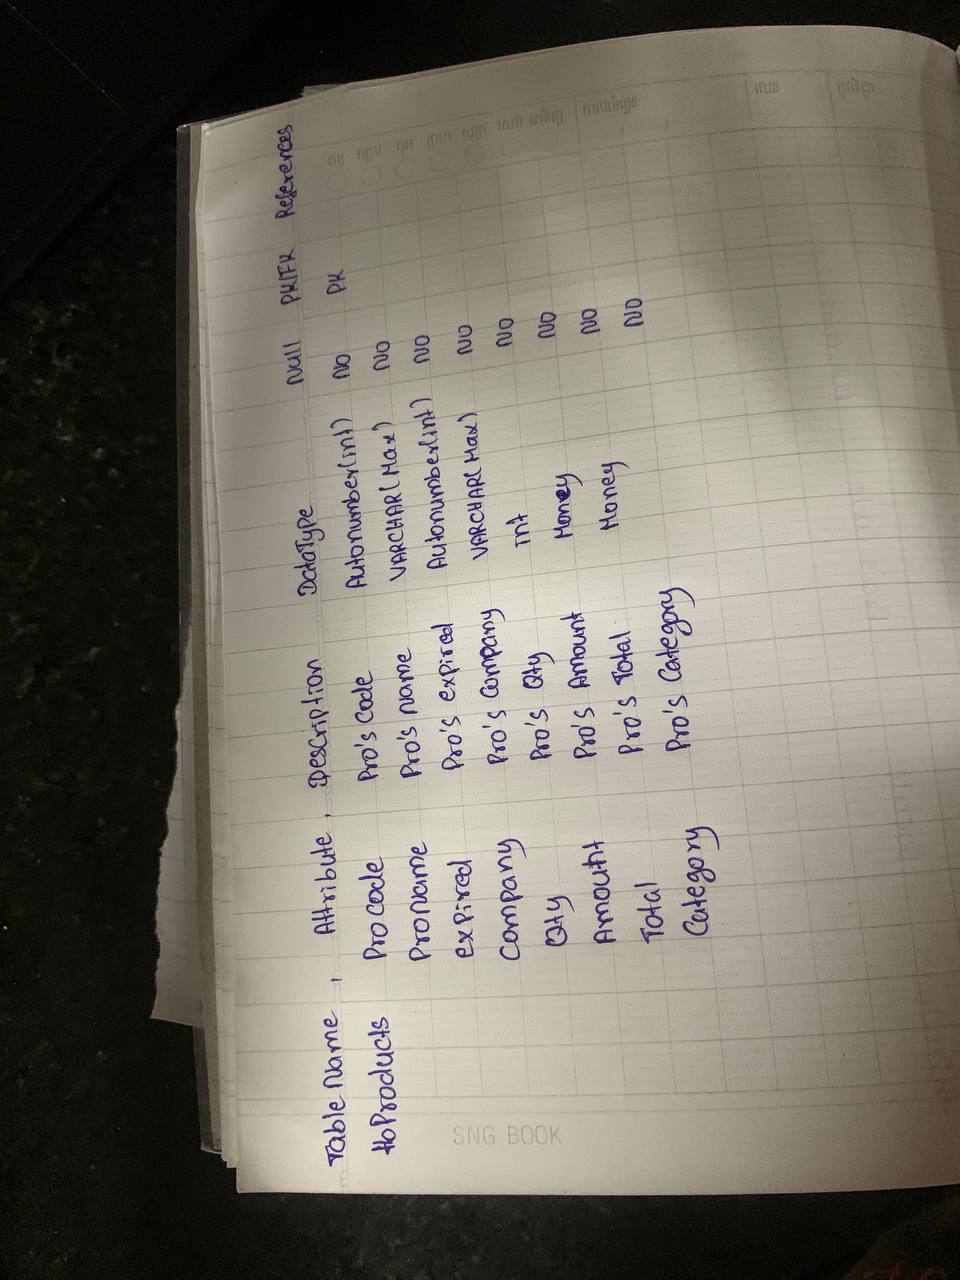 Table Name , Attribute , Description DataType Null PK/FK References
tbProducts ProCode Pro's Code Autonumber(int) NO PK
ProName Pro's Name VARCHAR(Max) NO
expired Pro's expired Autonumber(int) NO
Company Pro's Company VARCHAR(Max) NO
Qty Pro's Qty int NO
Amount Pro's Amount Money NO
Total Pro's Total Money NO
Category Pro's Category NO
SNG BOOK